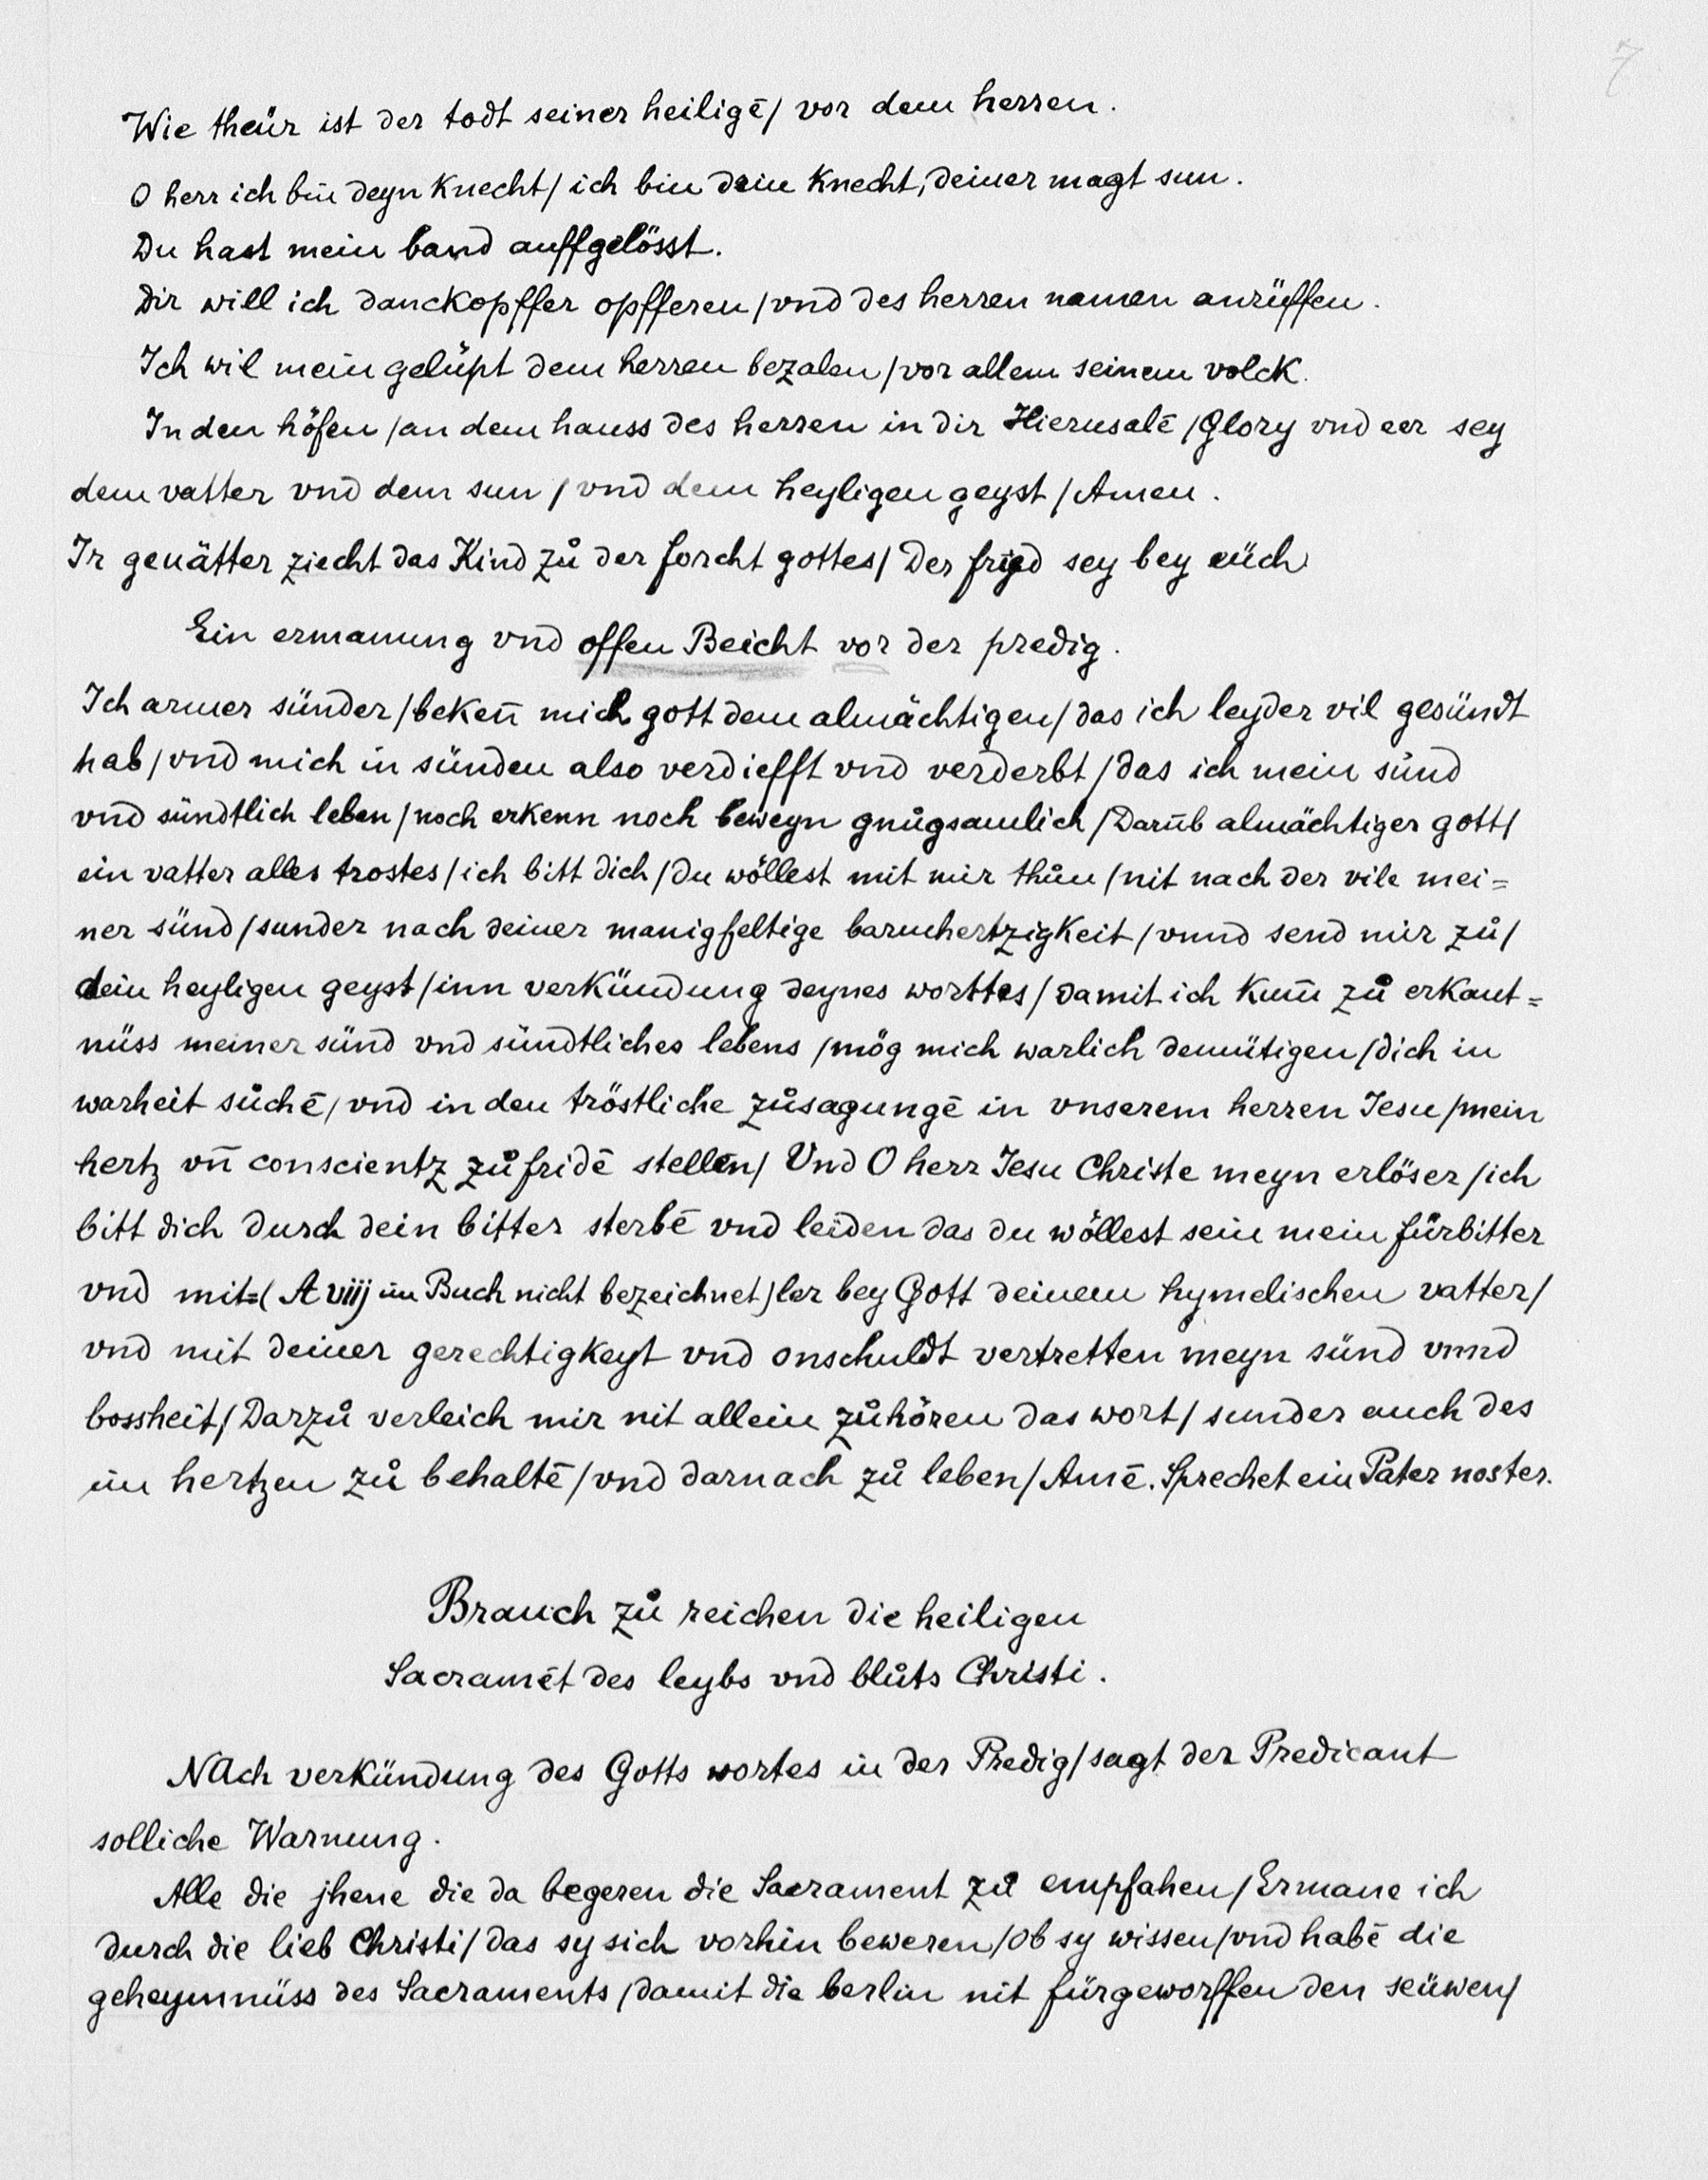 7
Wie theür ist der todt seiner heiligē/ vor dem herren.
O herr ich bin deyn Knecht/ ich bin dein Knecht, deiner magt sun.
Du hast mein band auffgelösst.
Dir will ich danckopffer opfferen/vnd des herren namen anrüffen.
Ich wil mein gelüpt dem herren bezalen/vor allem seinem volck.
In den höfen/an dem hauss des herren in dir Hierusalē/Glory vnd eer sey
dem vatter vnd dem sun/vnd dem heyligen geyst/Amen.
Ir geuätter ziecht das Kind zů der forcht gottes/ Der frid sey bey eüch
Ein ermanung vnd offen Beicht vor der predig.
Ich armer sünder/beken̄ mich gott dem almächtigen/das ich leyder vil gesündt
hab/vnd mich in sünden also verdiefft vnd verderbt/das ich mein sünd
vnd sündtlich leben/noch erkenn noch beweyn gnůgsamlich/Darūb almächtiger gott/
ein vatter alles trostes/ich bitt dich/du wöllest mit mir thůn/nit nach der vile mei=
ner sünd/sunder nach deiner manigfeltige barmhertzigkeit/vnnd send mir zů/
dein heyligen geyst/inn verkündung deynes worttes/damit ich kum̄ zů erkant=
nüss meiner sünd vnd sündtliches lebens/mög mich warlich demütigen/dich in
warheit sůchē/vnd in den tröstliche zůsagungē in vnserem herren Jesu/mein
hertz vn̄ conscientz zů fridē stellen/ Vnd O herr Jesu Christe meyn erlöser/ich
bitt dich durch dein bitter sterbē vnd leiden das du wöllest sein mein fürbitter
vnd mit=(A viij im Buch nicht bezeichnet)ler bey Gott deinem hymelischen vatter/
vnd mit deiner gerechtigkeyt vnd onschuldt vertretten meyn sünd vnnd
bossheit/Darzů verleich mir nit allein zůhören das wort/sunder auch des
im hertzen zů behaltē/vnd darnach zů leben/Amē. Sprechet ein Pater noster.
Brauch zů reichen die heiligen
Sacramēt des leybs vnd blůts Christi.
NAch verkündung des Gotts wortes in der Predig/sagt der Predicant
solliche Warnung.
Alle die jhene die da begeren die Sacrament zů empfahen/Ermane ich
durch die lieb Christi/das sy sich vorhin beweren/ob sy wissen/vnd habē die
geheymnüss des Sacraments/damit die berlin nit fürgeworffen den seüwen/